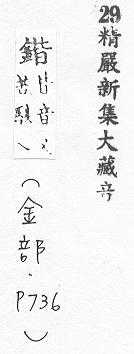 29精嚴新集大藏音
鍇皆音
苦駭
(金部.
P736)